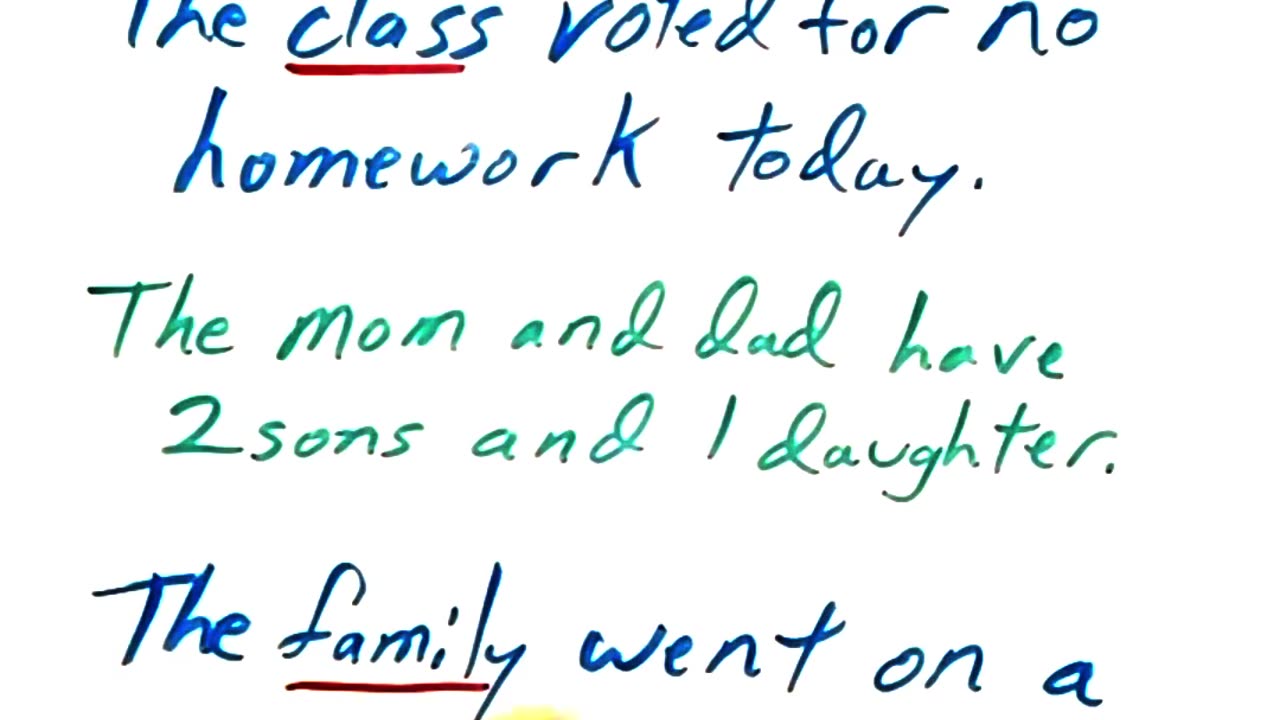 The class voted for no
homework today.
The mom and dad have
2 sons and 1 daughter.
The family went on a